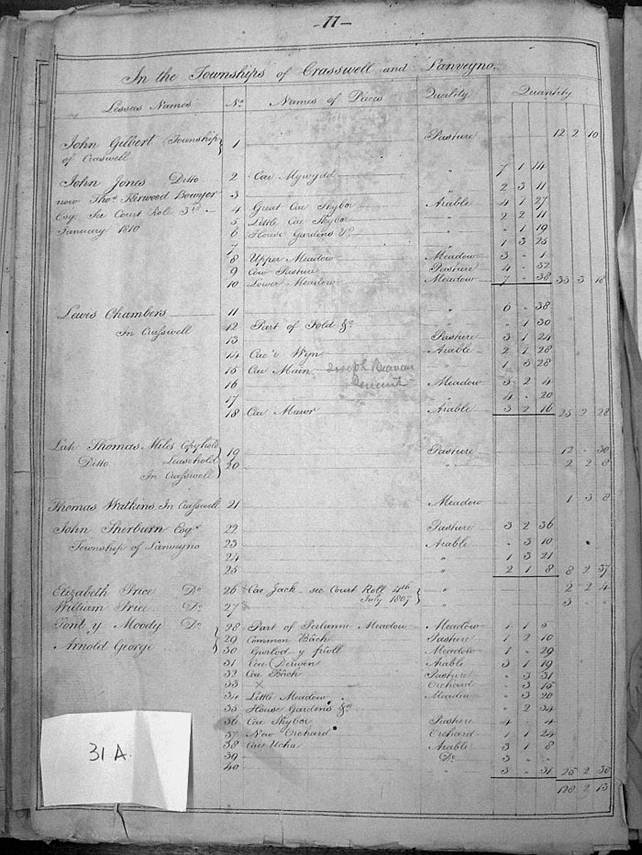 -77-
In the Townships of Crasswell and Lanveyno.
Lessees Names No. Names of Pieces Quality Quantity
John Gilbert (Township 1 Pasture 12 2 10
of Craswell
John Jones Ditto 2 Cae Mgwydd " 7 1 14
now Thos. Kirwood Bowyer 3 " 2 3 11
Esq. See Court Role 3rd 4 Great Cae Skybor Arable 4 1 27
January 1810 5 Little Cae Skybor " 2 2 11
6 House Gardens &c " - 1 19
7 " 1 3 25
8 Upper Meadow Meadow 3 - 1
9 Cow Pasture Pasture 4 - 32
10 Lower Meadow Meadow 7 - 38 33 3 18
Lewis Chambers 11 " 6 - 38
In Crasswell 12 Part of Fold &c " - 1 30
13 Pasture 3 1 24
14 Cae'r Wyn Arable 2 1 28
15 Cae Main Joseph Beavan " 1 3 28
16 Meadow 3 2 4
17 " 4 - 20
18 Cae Mawr Arable 3 2 16 25 2 28
Late Thomas Miles Copyhold 19 Pasture 12 - 30
Ditto Leasehold 20 " 2 2 8
In Crasswell
Thomas Watkins In Crasswell 21 Meadow 1 3 8
John Sherburn Esqr. 22 Pasture 3 2 36
Township of Lanveyno 23 Arable - 3 10
24 " 1 3 21
25 " 2 1 8 8 2 37
Elizabeth Price Do. 26 Cae Jack - see Court Roll 4th " 2 2 4
July 1807
William Price Do. 27 " 3 - -
Pont y Moody Do. 28 Part of Meadow Meadow 1 1 5
Arnold George 29 Common Bach Pasture 1 2 10
30 Gwrlod y Meadow 1 - 29
31 Cae Derwen Arable 3 1 19
32 Cae Bach Pasture - 3 31
33 X Orchard - 3 15
34 Little Meadow Meadow - 3 20
35 House Gardens &c - 2 34
36 Cae Skybor Pasture 4 - 4
37 New Orchard Orchard 1 1 24
38 Cae Ucha Arable 3 1 8
39 Do. 3 - -
40 3 - 31 25 2 30
128 2 13
31 A.